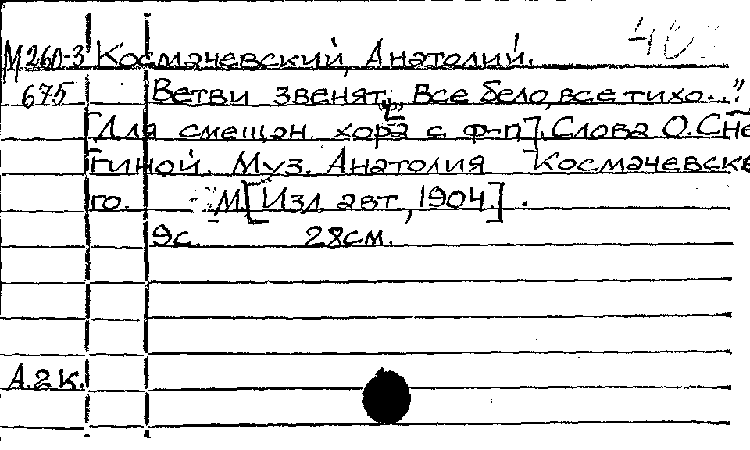 М260-3 Космачевский, Анатолий.
675 Ветви звенят. "Все бело, все тихо..."
[Для смешан. хора с ф-п]. Слова О. Сне
гиной. Муз. Анатолия Космачевско
го. М [Изд. авт., 1904.].
9с. 28см.
А.2к.